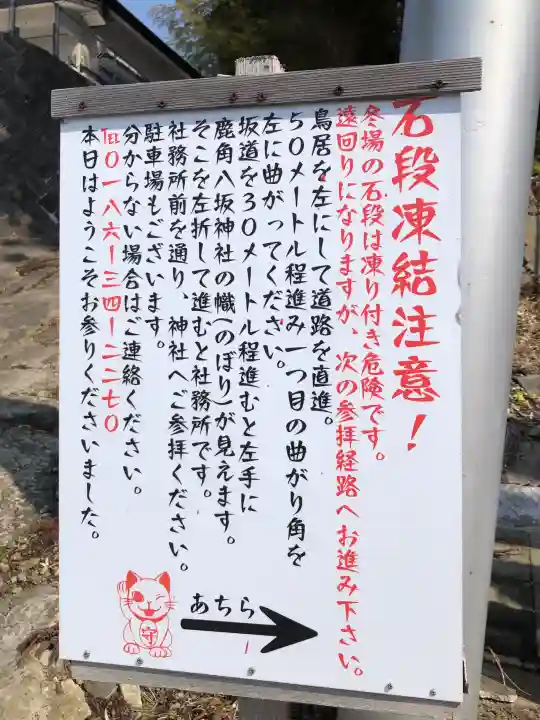 石段凍結注意！
冬場の石段は凍り付き危険です。
遠回りになりますが、次の参拝経路へお進み下さい。
鳥居を左にして道路を直進。
50メートル程進み一つ目の曲がり角を
左に曲がってください。
坂道を30メートル程進むと左手に
鹿角八坂神社の幟(のぼり)が見えます。
そこを左折して進むと社務所です。
社務所前を通り、神社へご参拝ください。
駐車場もございます。
分からない場合はご連絡ください。
TEL0186-34-2270
本日はようこそお参りくださいました。
あちら
守